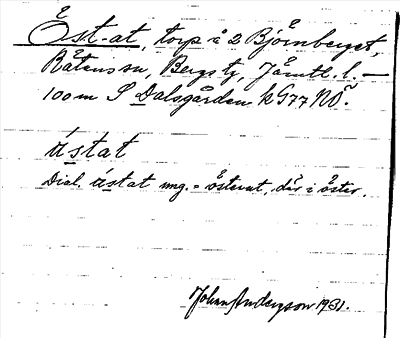 Öst-at, torp å 2 Björnberget,
Rätansn, Bergs tg, Jämtl. l. —
100 m S Dalsgården kG77NÖ.
ästat
Dial. ästat ung. = österut, där i öster.
Johan Anderson 1931.